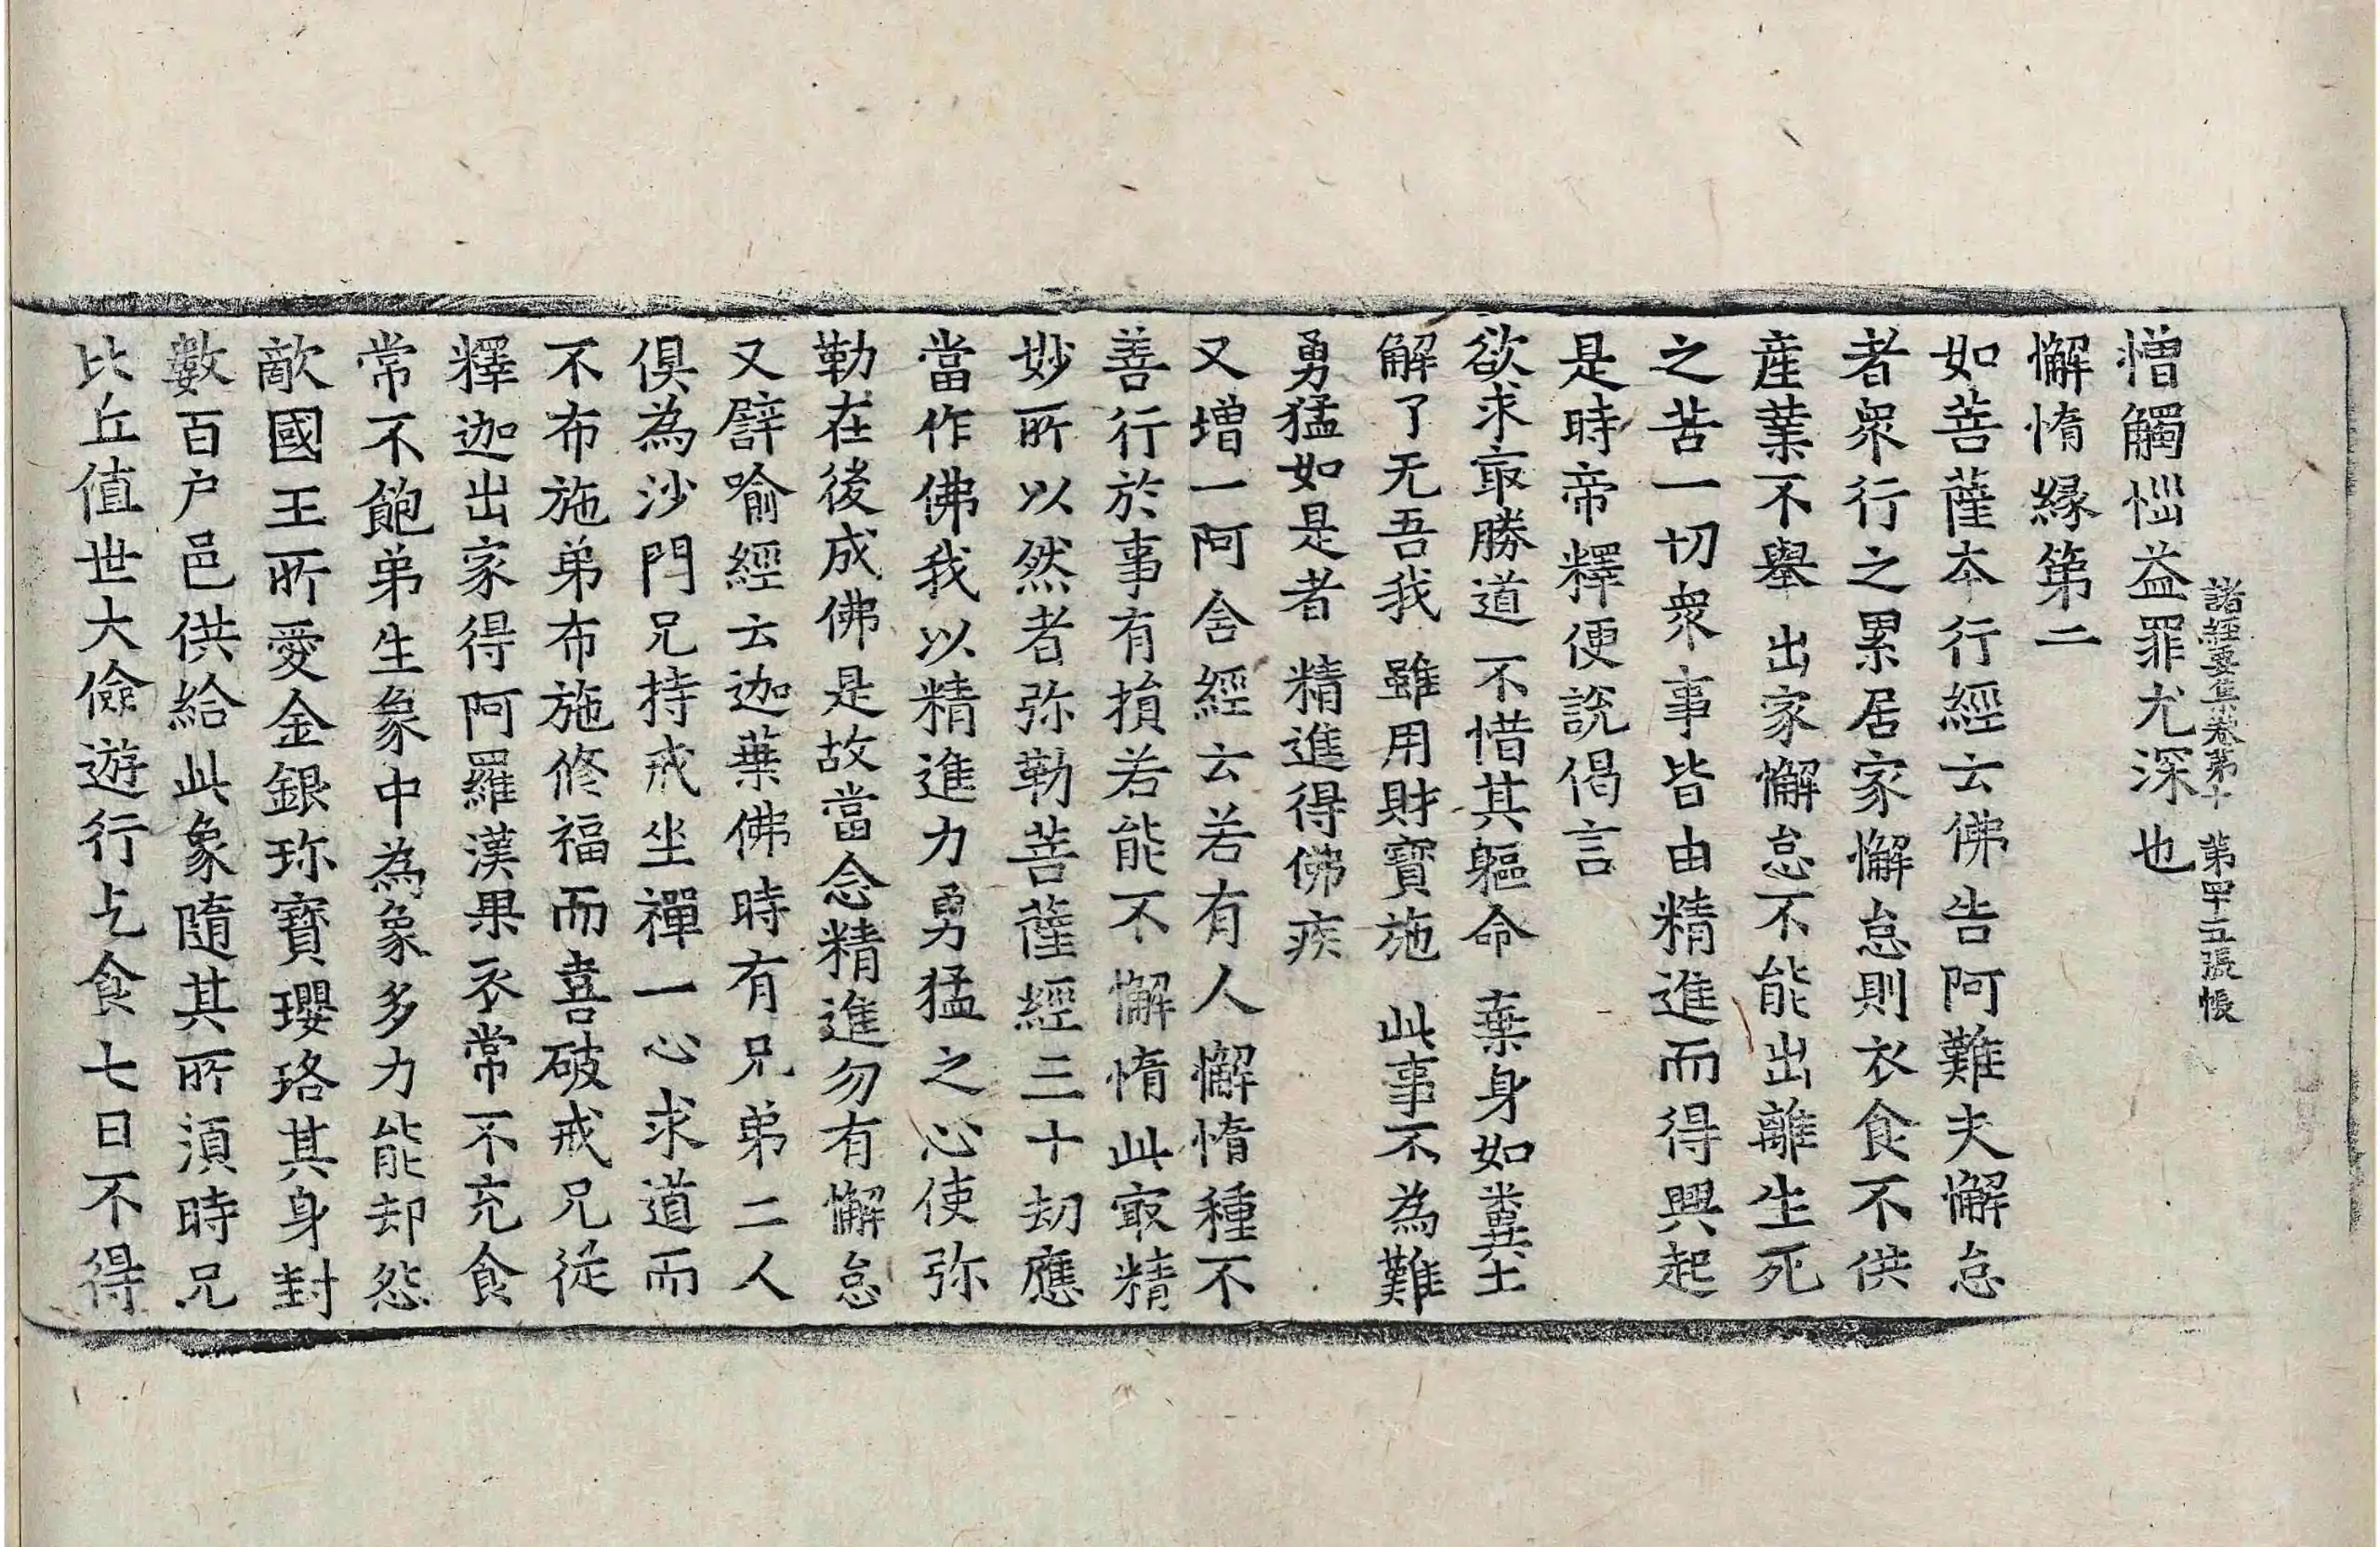 諸經要集卷第十 第四十五張 帳
憎觸惱益罪尤深也
懈惰緣第二
如菩薩本行經云佛告阿難夫懈怠
者衆行之累居家懈怠則衣食不供
産業不舉出家懈怠不能出離生死
之苦一切衆事皆由精進而得興起
是時帝釋便說偈言
欲求㝡勝道 不惜其軀命 棄身如糞土
解了无吾我 雖用財寶施 此事不為難
勇猛如是者 精進得佛疾
又增一阿含經云若有人懈惰種不
善行於事有損若能不懈惰此㝡精
妙所以然者弥勒菩薩經三十劫應
當作佛我以精進力勇猛之心使弥
勒在後成佛是故當念精進勿有懈怠
又譬喻經云迦葉佛時有兄弟二人
俱為沙門兄持戒坐禪一心求道而
不布施弟布施修福而喜破戒兄從
釋迦出家得阿羅漢果衣常不充食
常不飽弟生象中為象多力能却怨
敵國王所愛金銀珎寶瓔珞其身封
數百户邑供給此象隨其所須時兄
比丘值世大儉遊行乞食七日不得